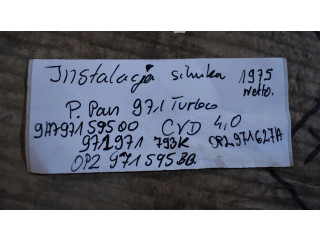 Instalacja silnika 1975
Netto.
P. Pan 971 Turbo
9A797159500 CVD 4,0
971971 793K OP2971627A
OP2 971595BB.